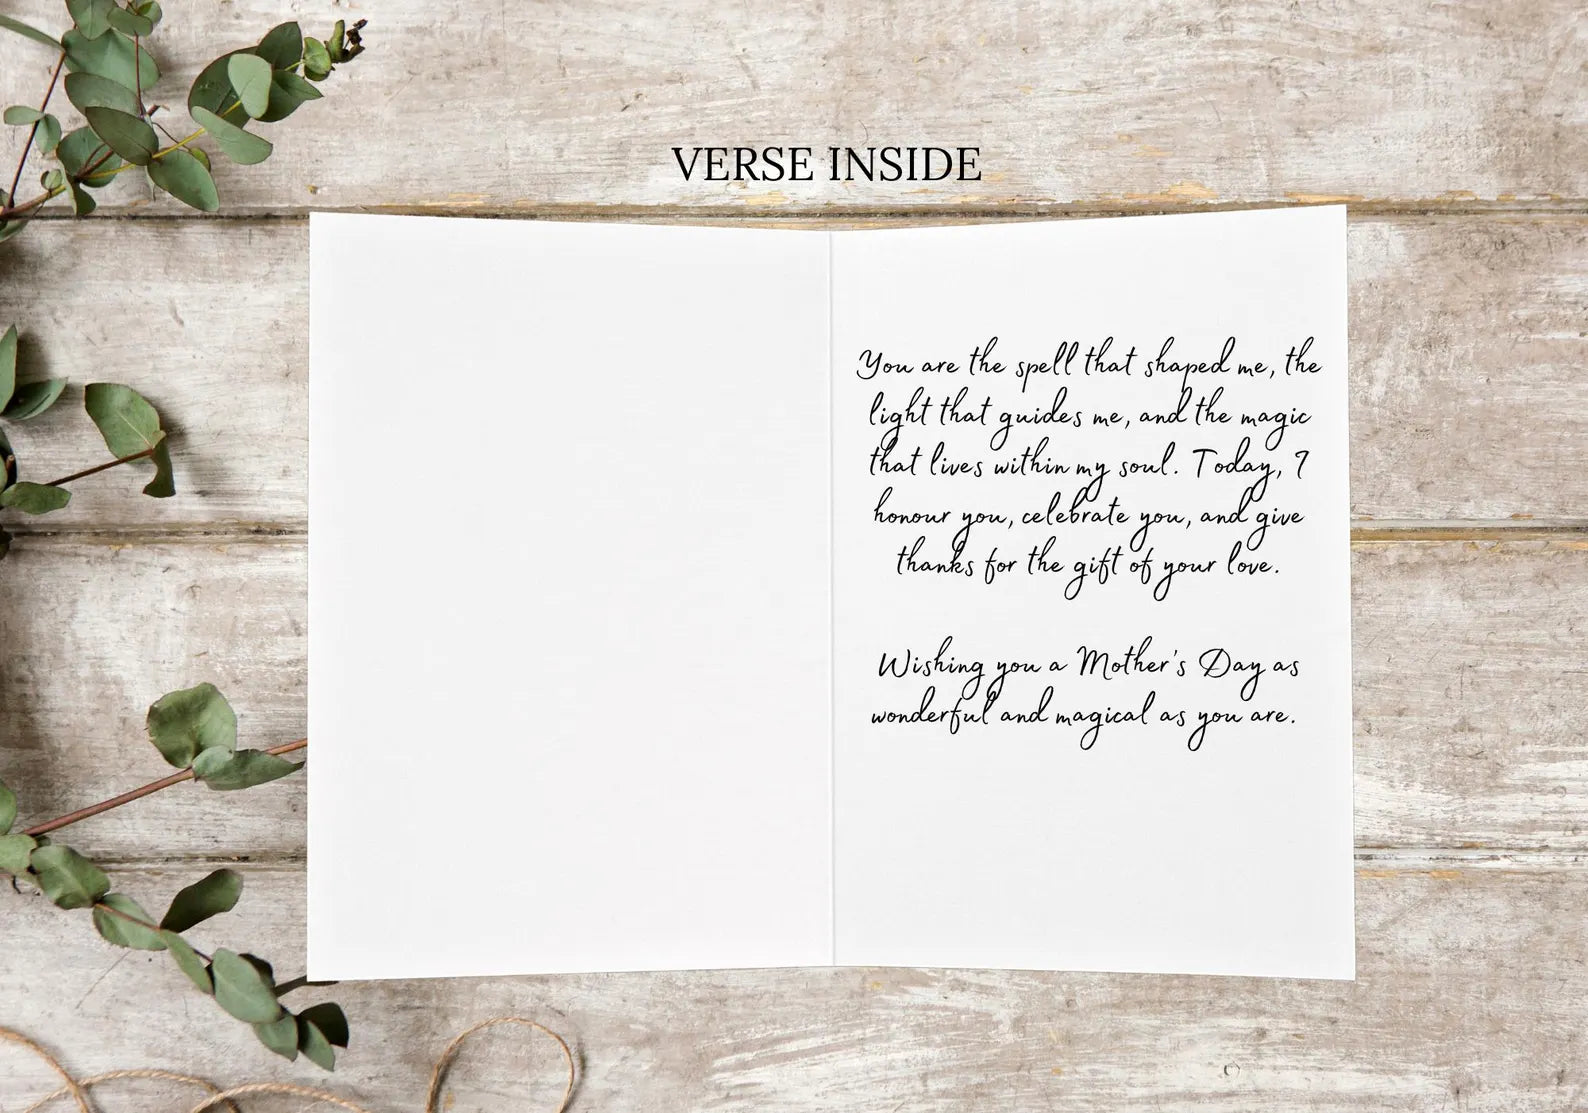 VERSE INSIDE
You are the spell that shaped me, the
light that guides me, and the magic
that lives within my soul. Today, I
honour you, celebrate you, and give
thanks for the gift of your love.
Wishing you a Mother's Day as
wonderful and magical as you are.